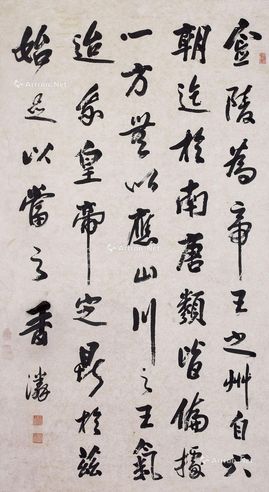 金陵為帝王之州自六
朝迄於南唐類皆偏據
一方無以應山川之王氣
迨我皇帝定鼎於茲
始足以當之香
Artron.Net